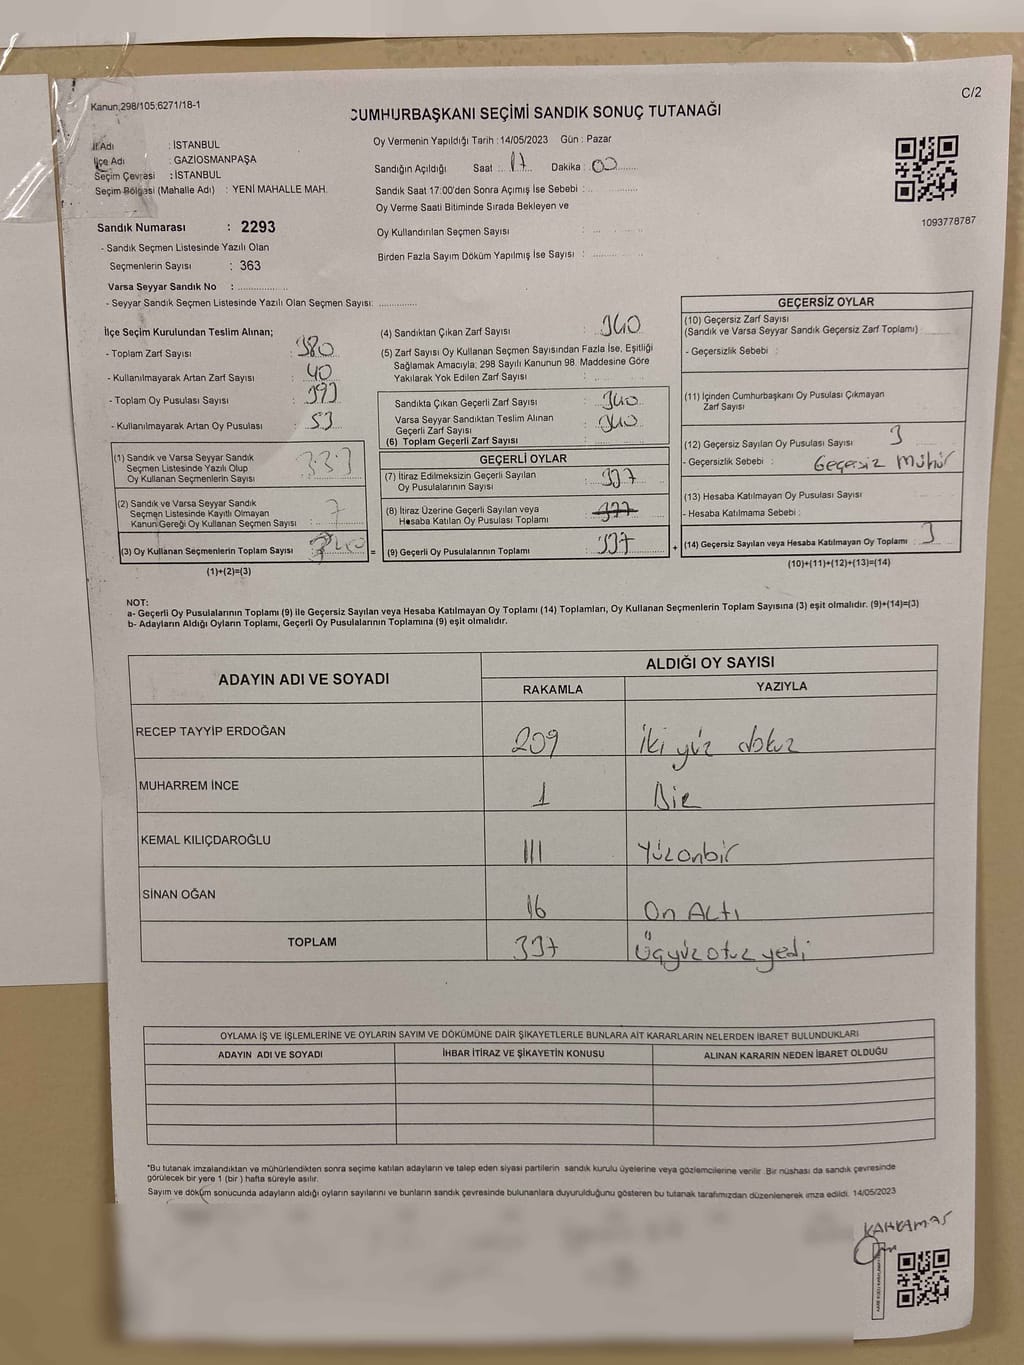 Kanun;298/105;6271/18-1
C/2
CUMHURBAŞKANI SEÇİMİ SANDIK SONUÇ TUTANAĞI
İl Adı : İSTANBUL
İlçe Adı : GAZİOSMANPAŞA
Seçim Çevresi : İSTANBUL
Seçim Bölgesi (Mahalle Adı) : YENİ MAHALLE MAH.
Sandık Numarası : 2293
- Sandık Seçmen Listesinde Yazılı Olan
Seçmenlerin Sayısı : 363
Varsa Seyyar Sandık No :
- Seyyar Sandık Seçmen Listesinde Yazılı Olan Seçmen Sayısı:
Oy Vermenin Yapıldığı Tarih : 14/05/2023 Gün : Pazar
Sandığın Açıldığı Saat : 17 Dakika : 00
Sandık Saat 17:00'den Sonra Açımış İse Sebebi :
Oy Verme Saati Bitiminde Sırada Bekleyen ve
Oy Kullandırılan Seçmen Sayısı :
Birden Fazla Sayım Döküm Yapılmış İse Sayısı :
1093778787
İlçe Seçim Kurulundan Teslim Alınan;
- Toplam Zarf Sayısı : 380
- Kullanılmayarak Artan Zarf Sayısı : 40
- Toplam Oy Pusulası Sayısı : 393
- Kullanılmayarak Artan Oy Pusulası : 53
(1) Sandık ve Varsa Seyyar Sandık
Seçmen Listesinde Yazılı Olup
Oy Kullanan Seçmenlerin Sayısı : 333
(2) Sandık ve Varsa Seyyar Sandık
Seçmen Listesinde Kayıtlı Olmayan
Kanun Gereği Oy Kullanan Seçmen Sayısı : 7
(3) Oy Kullanan Seçmenlerin Toplam Sayısı : 340 =
(1)+(2)=(3)
(4) Sandıktan Çıkan Zarf Sayısı : 340
(5) Zarf Sayısı Oy Kullanan Seçmen Sayısından Fazla İse, Eşitliği
Sağlamak Amacıyla, 298 Sayılı Kanunun 98. Maddesine Göre
Yakılarak Yok Edilen Zarf Sayısı :
Sandıkta Çıkan Geçerli Zarf Sayısı : 340
Varsa Seyyar Sandıktan Teslim Alınan
Geçerli Zarf Sayısı : 340
(6) Toplam Geçerli Zarf Sayısı :
GEÇERLİ OYLAR
(7) İtiraz Edilmeksizin Geçerli Sayılan
Oy Pusulalarının Sayısı : 337
(8) İtiraz Üzerine Geçerli Sayılan veya
Hesaba Katılan Oy Pusulası Toplamı :
(9) Geçerli Oy Pusulalarının Toplamı : 337 +
GEÇERSİZ OYLAR
(10) Geçersiz Zarf Sayısı
(Sandık ve Varsa Seyyar Sandık Geçersiz Zarf Toplamı)
- Geçersizlik Sebebi :
(11) İçinden Cumhurbaşkanı Oy Pusulası Çıkmayan
Zarf Sayısı
(12) Geçersiz Sayılan Oy Pusulası Sayısı 3
- Geçersizlik Sebebi : Geçersiz Mühür
(13) Hesaba Katılmayan Oy Pusulası Sayısı
- Hesaba Katılmama Sebebi :
(14) Geçersiz Sayılan veya Hesaba Katılmayan Oy Toplamı : 3
(10)+(11)+(12)+(13)=(14)
NOT:
a- Geçerli Oy Pusulalarının Toplamı (9) ile Geçersiz Sayılan veya Hesaba Katılmayan Oy Toplamı (14) Toplamları, Oy Kullanan Seçmenlerin Toplam Sayısına (3) eşit olmalıdır. (9)+(14)=(3)
b- Adayların Aldığı Oyların Toplamı, Geçerli Oy Pusulalarının Toplamına (9) eşit olmalıdır.
ADAYIN ADI VE SOYADI
ALDIĞI OY SAYISI
RAKAMLA YAZIYLA
RECEP TAYYİP ERDOĞAN 209 iki yüz dokuz
MUHARREM İNCE 1 Bir
KEMAL KILIÇDAROĞLU 111 Yüzonbir
SİNAN OĞAN 16 On Altı
TOPLAM 337 Üçyüzotuz yedi
OYLAMA İŞ VE İŞLEMLERİNE VE OYLARIN SAYIM VE DÖKÜMÜNE DAİR ŞİKAYETLERLE BUNLARA AİT KARARLARIN NELERDEN İBARET BULUNDUKLARI
ADAYIN ADI VE SOYADI İHBAR İTİRAZ VE ŞİKAYETİN KONUSU ALINAN KARARIN NEDEN İBARET OLDUĞU
*Bu tutanak imzalandıktan ve mühürlendikten sonra seçime katılan adayların ve talep eden siyasi partilerin sandık kurulu üyelerine veya gözlemcilerine verilir. Bir nüshası da sandık çevresinde
görülecek bir yere 1 (bir ) hafta süreyle asılır.
Sayım ve döküm sonucunda adayların aldığı oyların sayılarını ve bunların sandık çevresinde bulunanlara duyurulduğunu gösteren bu tutanak tarafımızdan düzenlenerek imza edildi. 14/05/2023